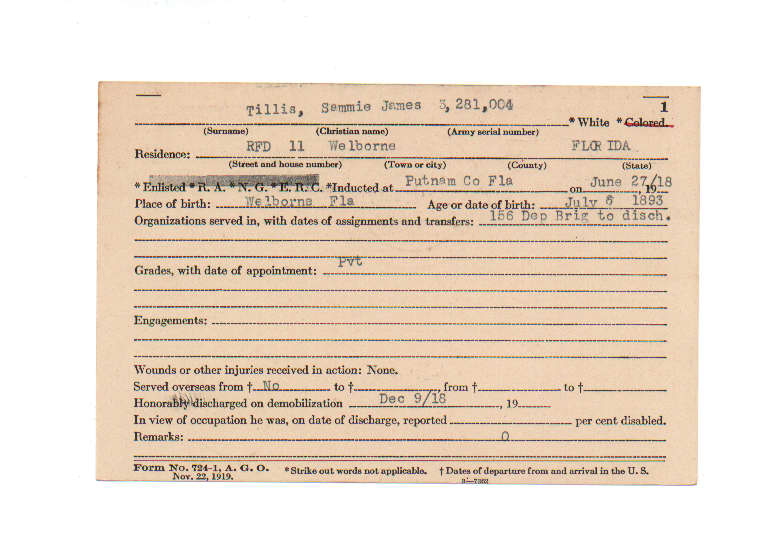 Tillis, Sammie James 3,281,004 1
* White * Colored.
(Surname) (Christian name) (Army serial number)
Residence: RFD 11 Welborne FLORIDA
(Street and house number) (Town or city) (County) (State)
* Enlisted * R. A. * N. G. * E. R. C. *Inducted at Putnam Co Fla on June 27/18 , 19
Place of birth: Welborne Fla Age or date of birth: July 6 1893
Organizations served in, with dates of assignments and transfers: 156 Dep Brig to disch.
Pvt
Grades, with date of appointment:
Engagements:
Wounds or other injuries received in action: None.
Served overseas from † No to † , from † to †
Honorably discharged on demobilization Dec 9/18 , 19
In view of occupation he was, on date of discharge, reported per cent disabled.
Remarks: 0
Form No. 724-1, A. G. O. *Strike out words not applicable. † Dates of departure from and arrival in the U. S.
Nov. 22, 1919.